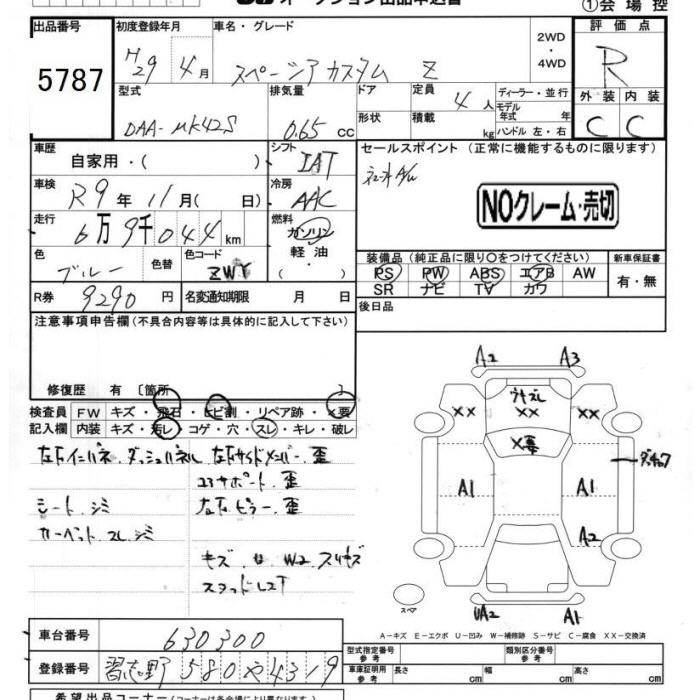 オークション出品申込書
①会場控
出品番号
5787
初度登録年月
H29年4月
車名・グレード
スペーシア カスタム Z
2WD
・
4WD
評価点
R
外装 内装
C C
型式
DAA-MK42S
排気量
0.65 cc
ドア
形状
定員 4人
積載 kg
ディーラー・並行
モデル年式 年
ハンドル 左・右
車歴
自家用・( )
シフト
IAT
セールスポイント (正常に機能するものに限ります)
NOクレーム・売切
車検
R9年11月( 日)
冷房
AAC
走行
6万9千044km
燃料
ガソリン
軽油
・( )
色
ブルー
色替
色コード
ZWY
R券 9290円
名変通知期限 月 日
装備品 (純正品に限り○をつけてください)
PS PW ABS エアB AW
SR ナビ TV カワ
新車保証書
有・無
後日品
注意事項申告欄 (不具合内容等は具体的に記入して下さい)
修復歴 有 〔箇所 〕
検査員 FW キズ・飛石・ヒビ割・リペア跡・×要
記入欄 内装 キズ・汚レ・コゲ・穴・スレ・キレ・破レ
左右インパネ、ダッシュパネル 左右サイドメンバー、歪
コアサポート、歪
シート、シミ 左右ピラー、歪
カーペット スレ シミ
キズ W2
スタッドレス
A2 A3
XX XX XX
×要
A1 A1
A2
UA2 A1
スペア
A-キズ E-エクボ U-凹み W-補修跡 S-サビ C-腐食 XX-交換済
車台番号 630300
登録番号 習志野 580 や 4319
型式指定番号 参考
類別区分番号 参考
車庫証明用 参考 長さ cm 幅 cm 高さ cm
希望出品コーナー (コーナーは各会場により異なります)